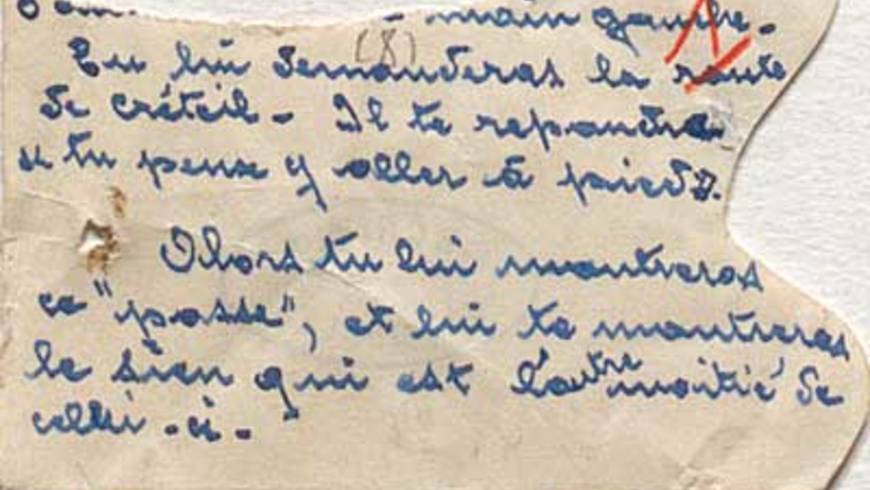 - main gauche.
(8)
Tu lui demanderas la route
de Créteil - Il te repondra
si tu peux y aller à pieds.
Alors tu lui montreras
ce "passe", et lui te montreras
le sien qui est l'autre moitié de
celui-ci -